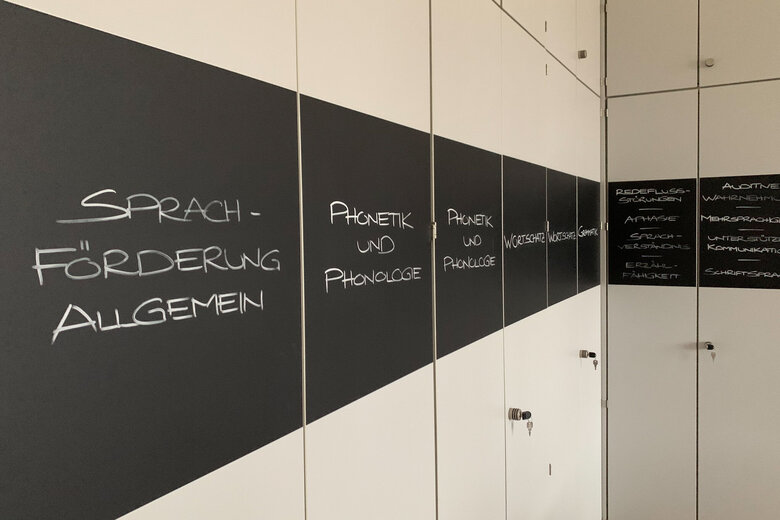 SPRACH-
FÖRDERUNG
ALLGEMEIN
PHONETIK
UND
PHONOLOGIE
PHONETIK
UND
PHONOLOGIE
WORTSCHATZ
WORTSCHATZ
GRAMMATIK
REDEFLUSS-
STÖRUNGEN
APHASIE
SPRACH-
VERSTÄNDNIS
ERZÄHL-
FÄHIGKEIT
AUDITIVE
WAHRNEHM
MEHRSPRACHIG
UNTERSTÜTZE
KOMMUNIKATIO
SCHRIFTSPRAC